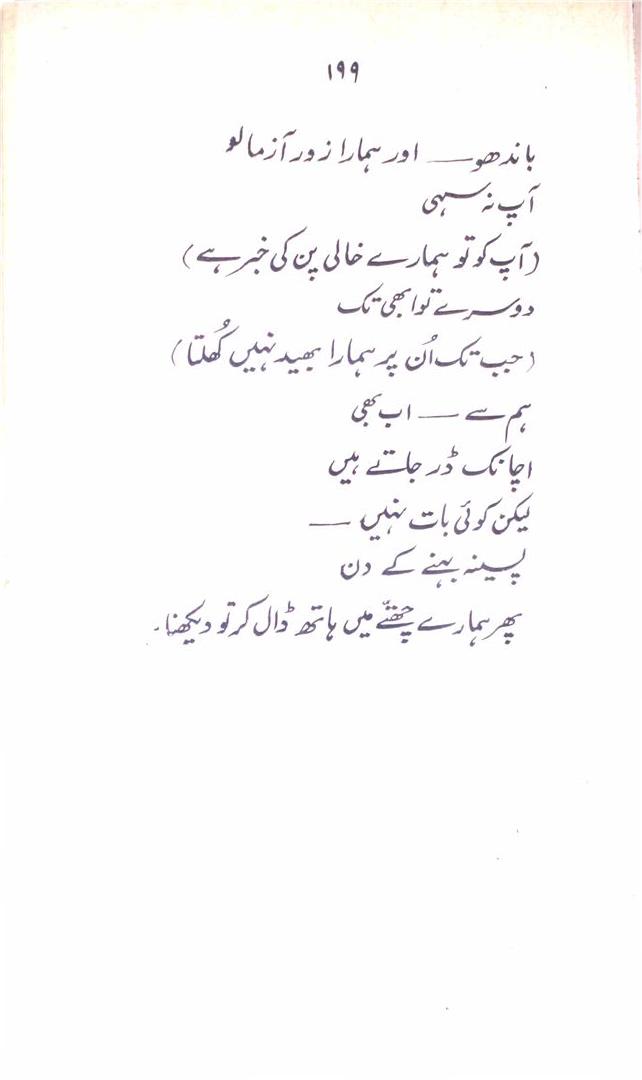 ۱۹۹
باندھو — اور ہمارا زور آزما لو
آپ نہ سہی
(آپ کو تو ہمارے خالی پن کی خبر ہے)
دوسرے تو ابھی تک
(جب تک اُن پر ہمارا بھید نہیں کُھلتا)
ہم سے — اب بھی
اچانک ڈر جاتے ہیں
لیکن کوئی بات نہیں —
پسینہ بہنے کے دن
پھر ہمارے چھتّے میں ہاتھ ڈال کر تو دیکھنا۔